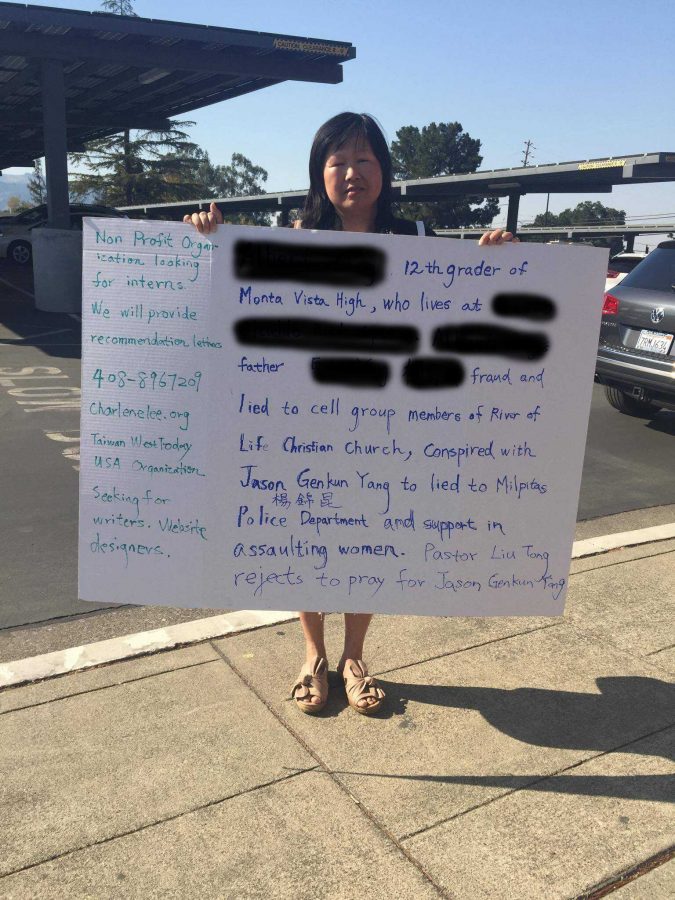 Non Profit Organ-
ization looking
for interns
We will provide
recommendation letters
408-8967209
Charlenelee.org
Taiwan WestToday
USA Organization
Seeking for
writers. Website
designers.
12th grader of
Monta Vista High, who lives at
father fraud and
lied to cell group members of River of
Life Christian Church, Conspired with
Jason Genkun Yang to lied to Milpitas
楊錦昆
Police Department and support in
assaulting women. Pastor Liu Tong
rejects to pray for Jason Genkun Yang